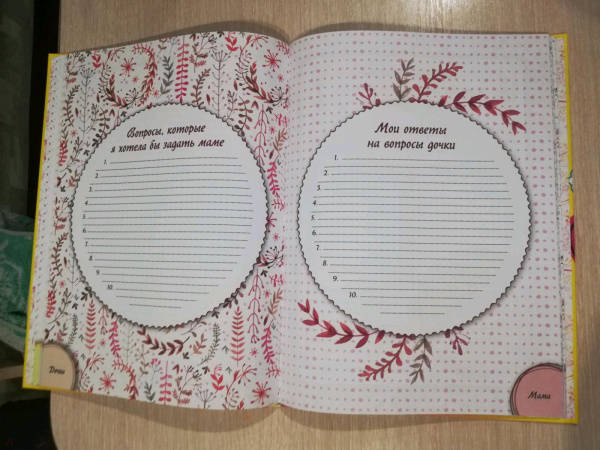 Вопросы, которые
я хотела бы задать маме
1.
2.
3.
4.
5.
6.
7.
8.
9.
10.
Дочь
Мои ответы
на вопросы дочки
1.
2.
3.
4.
5.
6.
7.
8.
9.
10.
Мама